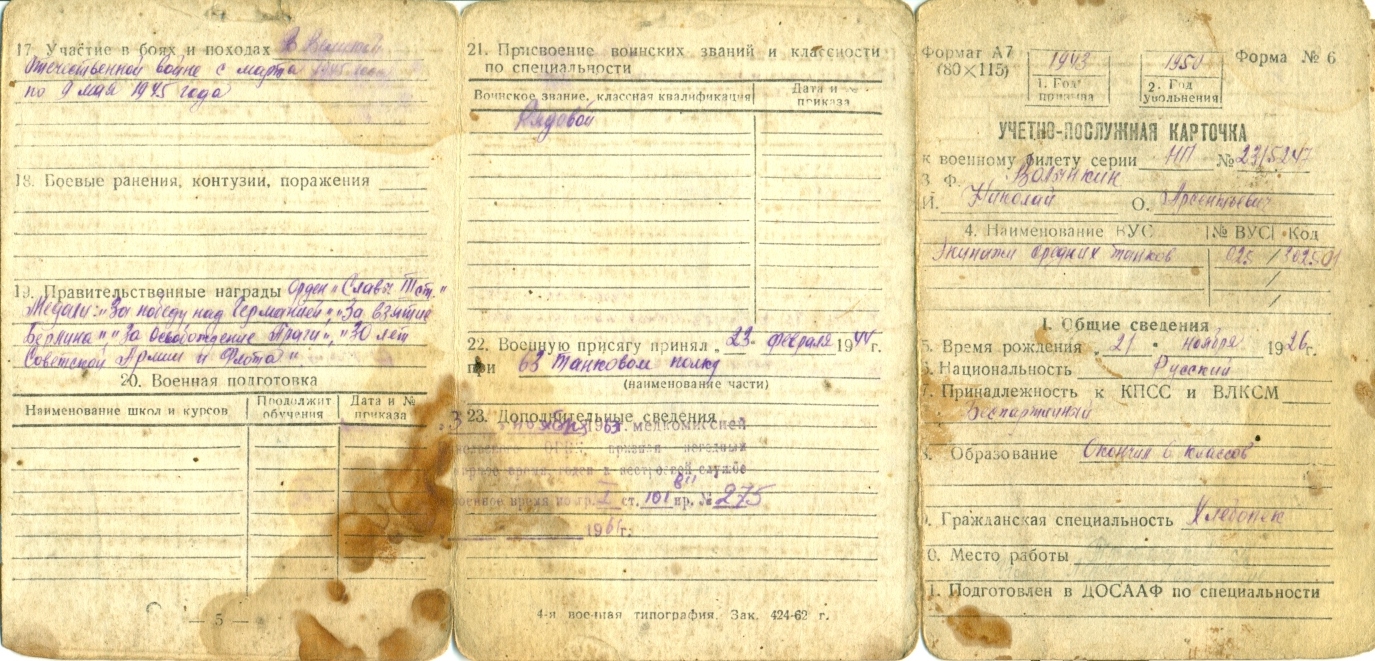 17. Участие в боях и походах в Великой
Отечественной войне с марта 1945 года
по 9 мая 1945 года
18. Боевые ранения, контузии, поражения
19. Правительственные награды Орден "Слава III ст."
Медали: "За победу над Германией", "За взятие
Берлина" "За освобождение Праги", "30 лет
Советской Армии и Флота".
20. Военная подготовка
Наименование школ и курсов
Продолжит обучения
Дата и № приказа
— 5 —
21. Присвоение воинских званий и классности
по специальности
Воинское звание, классная квалификация
Дата и № приказа
Рядовой
22. Военную присягу принял „23" февраля 1944 г.
при 63 танковом полку
(наименование части)
23. Дополнительные сведения
3 1963 г. медкомиссией
ОГВК признан негодный
мирное время, годен к нестроевой службе
военное время по гр. I ст. 101 пр. № 275
196 г.
4-я военная типография. Зак. 424-62 г.
Формат А7
(80×115)
1943
1. Год призыва
1950
2. Год увольнения
Форма № 6
УЧЕТНО-ПОСЛУЖНАЯ КАРТОЧКА
к военному билету серии НП № 2315247
3. Ф. Волынкин
И. Николай О. Арсентьевич
4. Наименование ВУС № ВУС Код
Экипажи средних танков 025
I. Общие сведения
5. Время рождения „21" ноября 1926 г.
6. Национальность Русский
7. Принадлежность к КПСС и ВЛКСМ
Беспартийный
8. Образование Окончил 6 классов
9. Гражданская специальность Хлебопек
10. Место работы
11. Подготовлен в ДОСААФ по специальности